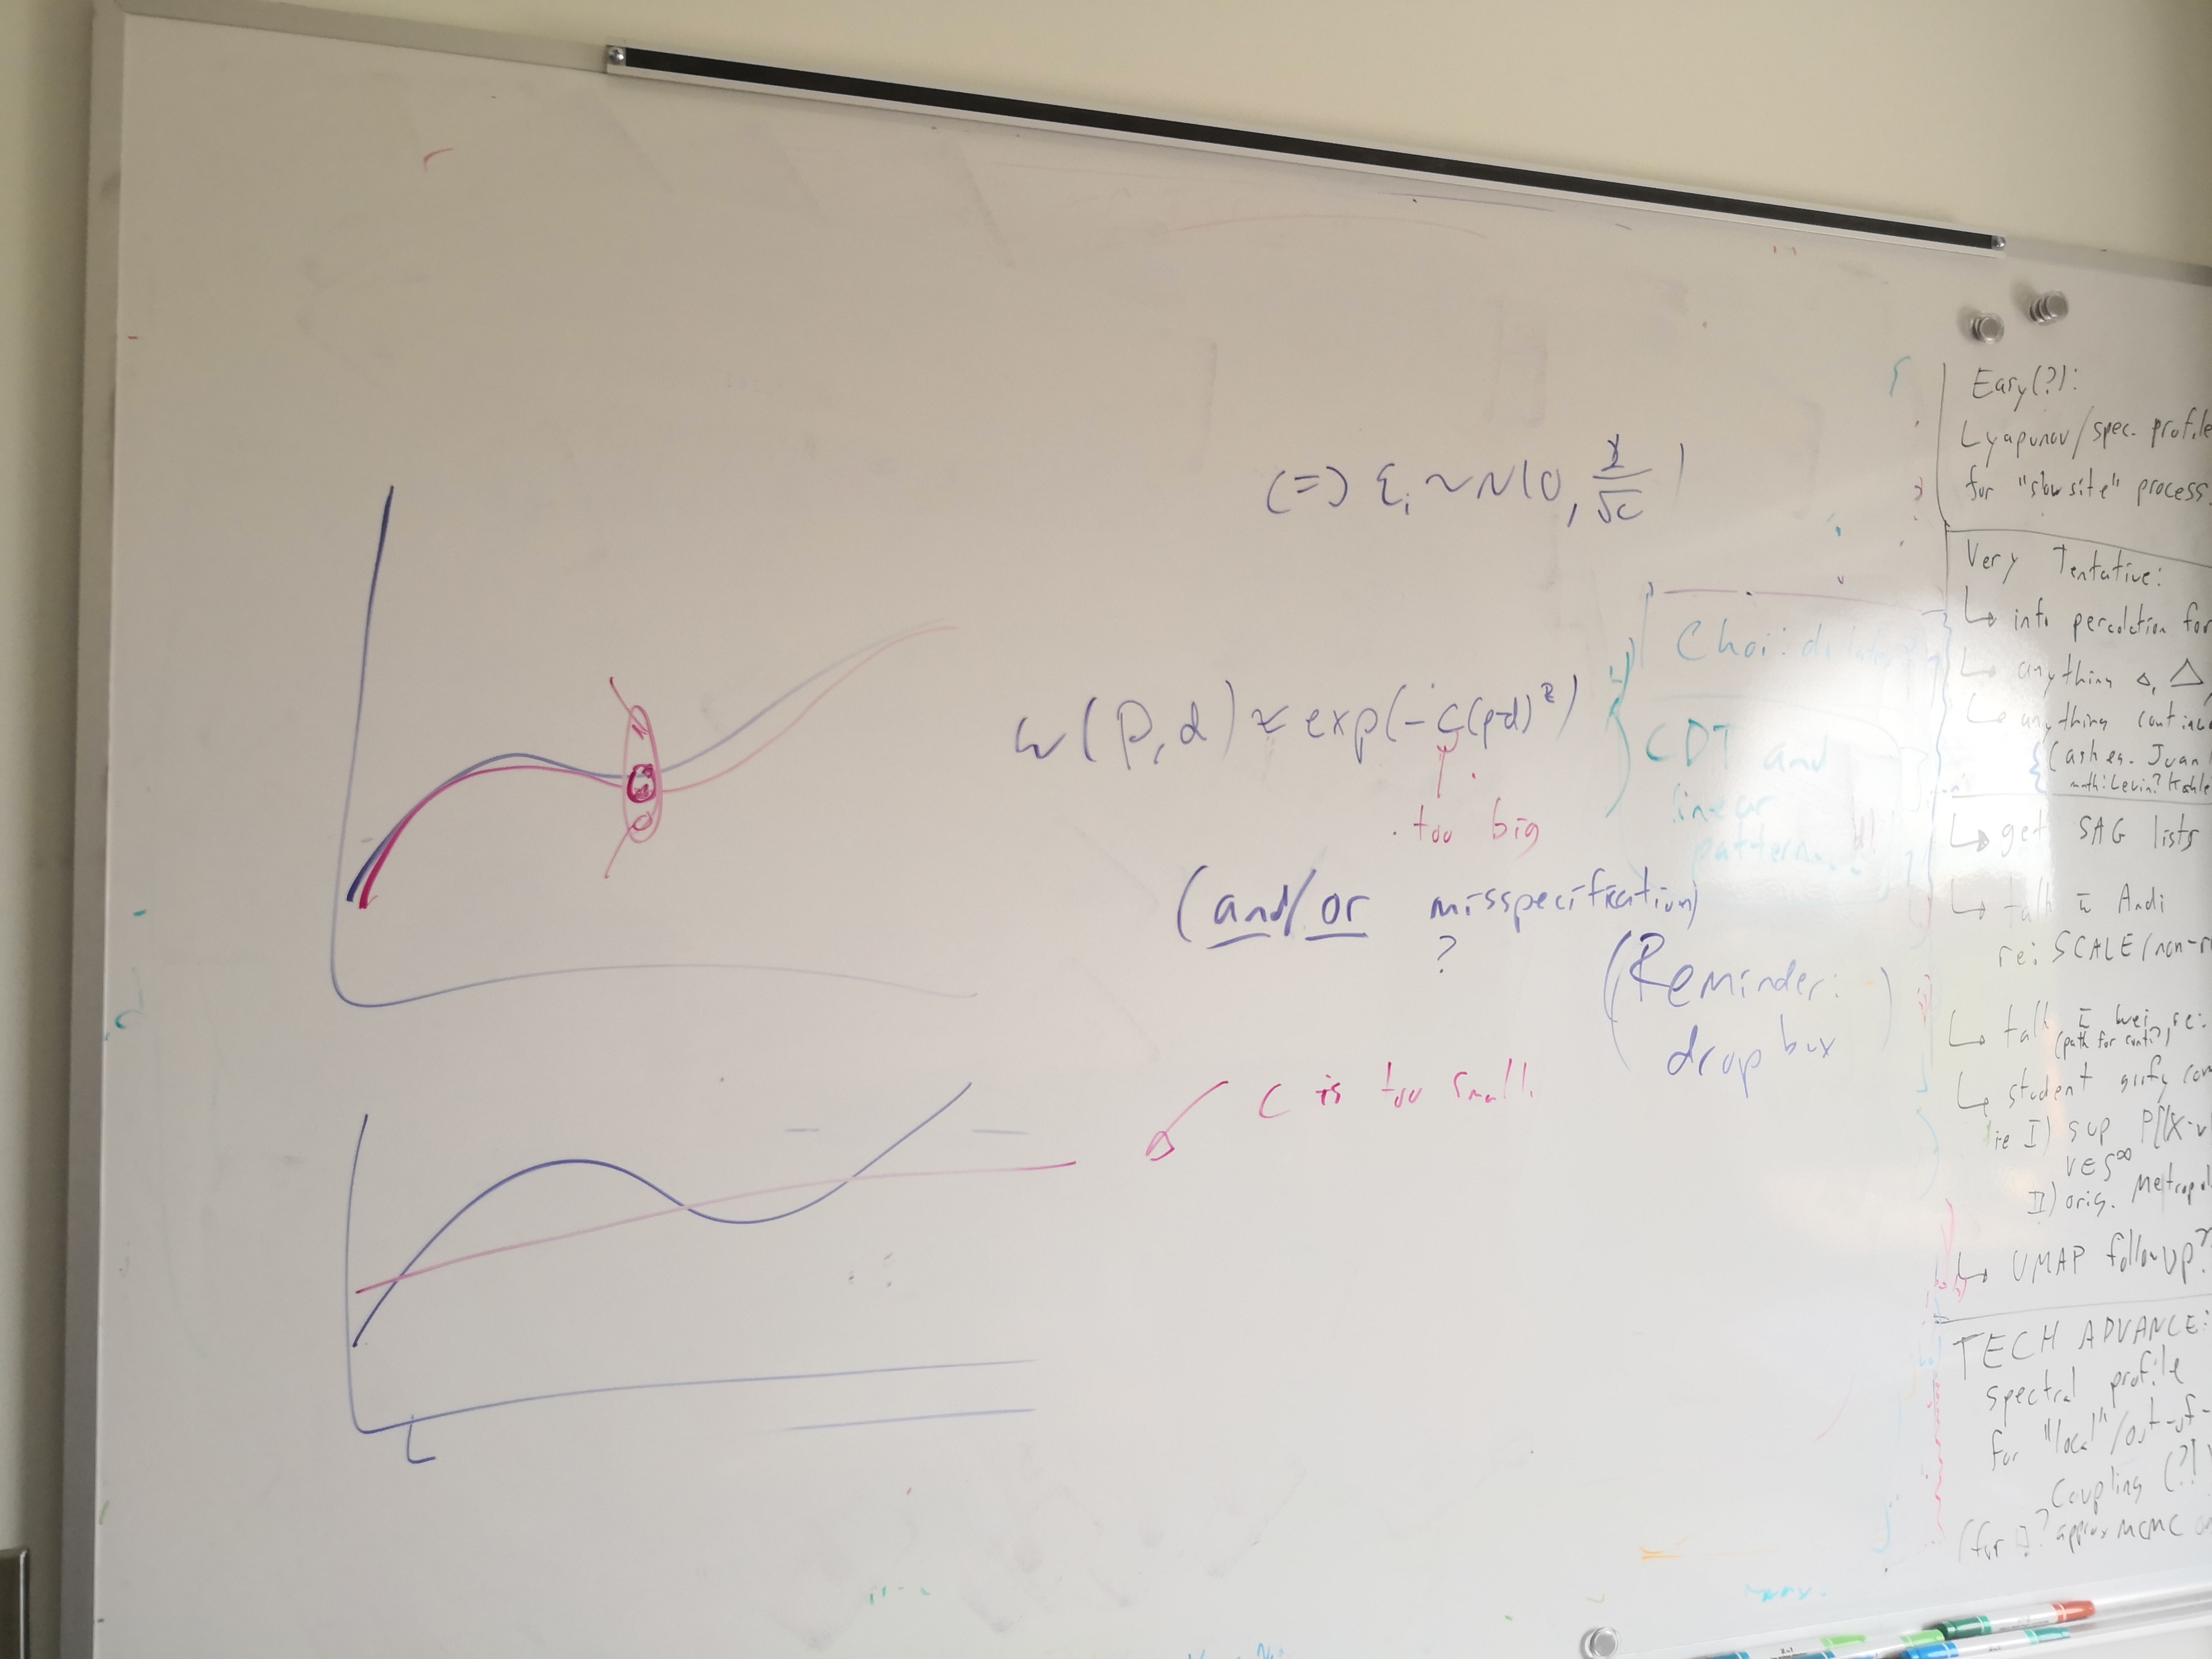 (=) ε_i ~ N(0, 1/√c)
w(p,d) ≈ exp(-c(p-d)²)
too big
(and/or misspecification)
?
(Reminder:
drop box)
C is too small.
Choi:
CDT and
linear
pattern...
Easy(?):
Lyapunov/spec. profile
for "slow site" process
Very Tentative:
↳ info percolation for
↳ anything △, △
↳ anything
math: Levin?
↳ get SAG lists
↳ talk c̄ Andi
re: SCALE/non-
↳ talk c̄ Wei, re:
(path for
↳ student
ie I) sup P[|X-v
v∈S^∞
II) orig. Metropol
↳ UMAP followup?
TECH ADVANCE:
spectral profile
for "local"/out-of-
Coupling (?)
(for □? approx MCMC